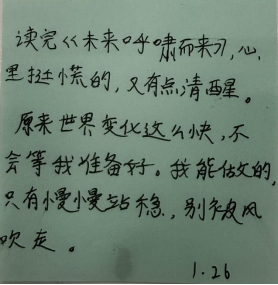 读完《未来呼啸而来》,心
里挺慌的,又有点清醒。
原来世界变化这么快,不
会等我准备好。我能做的,
只有慢慢站稳,别被风
吹走。
1.26